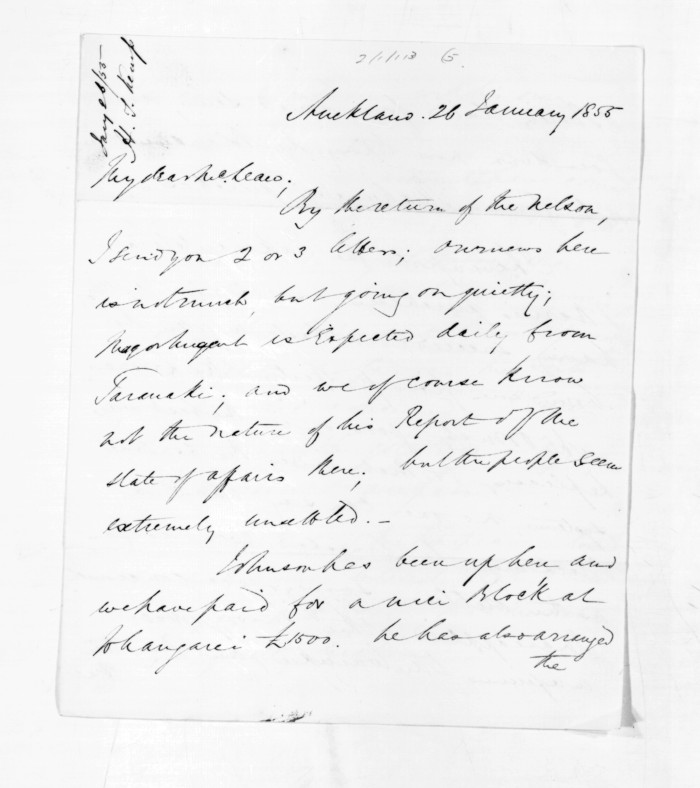 Jany 26/55
H. T. Kemp
Auckland. 26 January 1855
My dear McLean;
By the return of the Nelson,
I send you 2 or 3 letters; our news here
is not much, but going on quietly;
Major Nugent is Expected daily from
Taranaki; and we of course Know
not the nature of his Report of the
state of affairs there; but the people seem
extremely unsettled. -
Johnson has been up here and
we have paid for a nice Block at
Whangarei £1500. he has also arranged
the